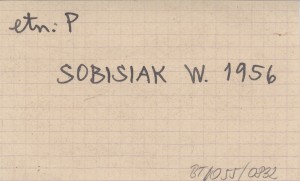 etn: P
SOBISIAK W. 1956
BT/055/0832